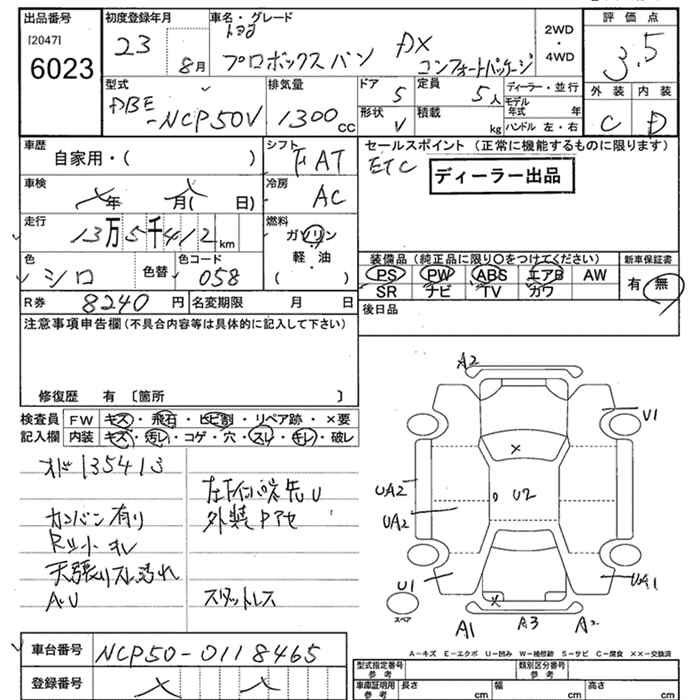 出品番号
[2047]
6023
初度登録年月
23
8月
車名・グレード
トヨタ
プロボックスバン DX コンフォートパッケージ
2WD
・
4WD
評価点
3.5
外装 内装
C D
型式
DBE
-NCP50V
排気量
1300
CC
ドア
5
定員
5人
形状
V
積載
kg
ディーラー・並行
モデル年式 年
ハンドル 左・右
車歴
自家用・( )
シフト
F AT
車検
年 月( 日)
冷房
AC
走行
13万5千412km
燃料
ガソリン
・
軽・油
( )
色
シロ
色替
色コード
058
R券 8240円
名変期限 月 日
セールスポイント (正常に機能するものに限ります)
ETC
ディーラー出品
装備品 (純正品に限り○をつけてください)
新車保証書
PS PW ABS エアB AW
SR ナビ TV カワ
有・無
後日品
注意事項申告欄 (不具合内容等は具体的に記入して下さい)
修復歴 有 〔箇所 〕
検査員
記入欄
FW キズ・飛石・ヒビ割・リペア跡・×要
内装 キズ・汚レ・コゲ・穴・スレ・キレ・破レ
メド 135413
カンバン有り
天張りスレ汚れ
AU
外装Pアセ
スタットレス
A2
V1
×
UA2
UA2
U2
U1
スペア
×
A1
A3
車台番号
NCP50-0118465
登録番号
A-キズ E-エクボ U-凹み W-補修跡 S-サビ C-腐食 ××-交換済
型式指定番号
参考
類別区分番号
参考
車庫証明用
参考
長さ cm
幅 cm
高さ cm